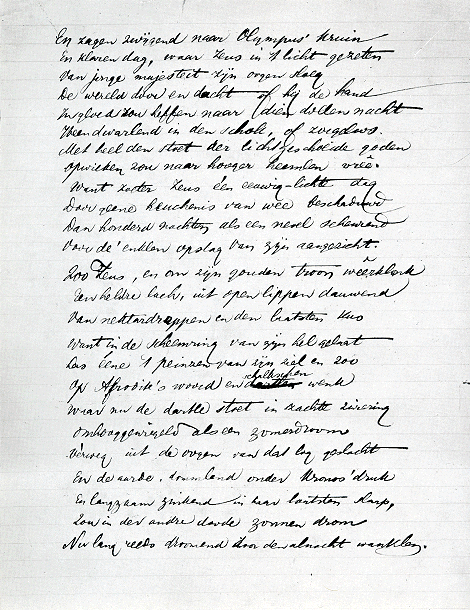 En zagen zwijgend naar Olympus' kruin
En klaren dag, waar Zeus in 't licht gezeten
Van jonge majesteit zijn oogen sloeg
De wereld door en dacht of hij de hand
zou heffen naar dien dollen nacht
in den schoot, of zorgeloos
Met heel den stoet der goden
opwieken zou naar hooger heemlen vreê.
Want zoeter Zeus een eeuwig-lichte dag
Door geene heuchenis van wee beschaduwd
Dan honderd nachten als een nevel scheurend
Voor de' enklen opslag van zijn aangezicht.
Zoo Zeus, en om zijn gouden troon weêrklonk
Een heldre lach, uit open lippen dauwend
Van nektardroppen en den laatsten kus
Want in de scheemring van zijn hel gelaat
Las eene 't peinzen van zijn ziel en zoo
Op Afrodite's woord en schalkschen wenk
Waar nu de dartle stoet in zachte zwering
omhooggewiegeld als een zomerdroom
Verweg uit de oogen van dat laag geslacht
En de aarde, onder Kronos' druk
En langzaam zinkend in haar laatsten slaap,
Zou in der andre doode zonnen drom
Nu lang reeds droomend door den alnacht wanklen.